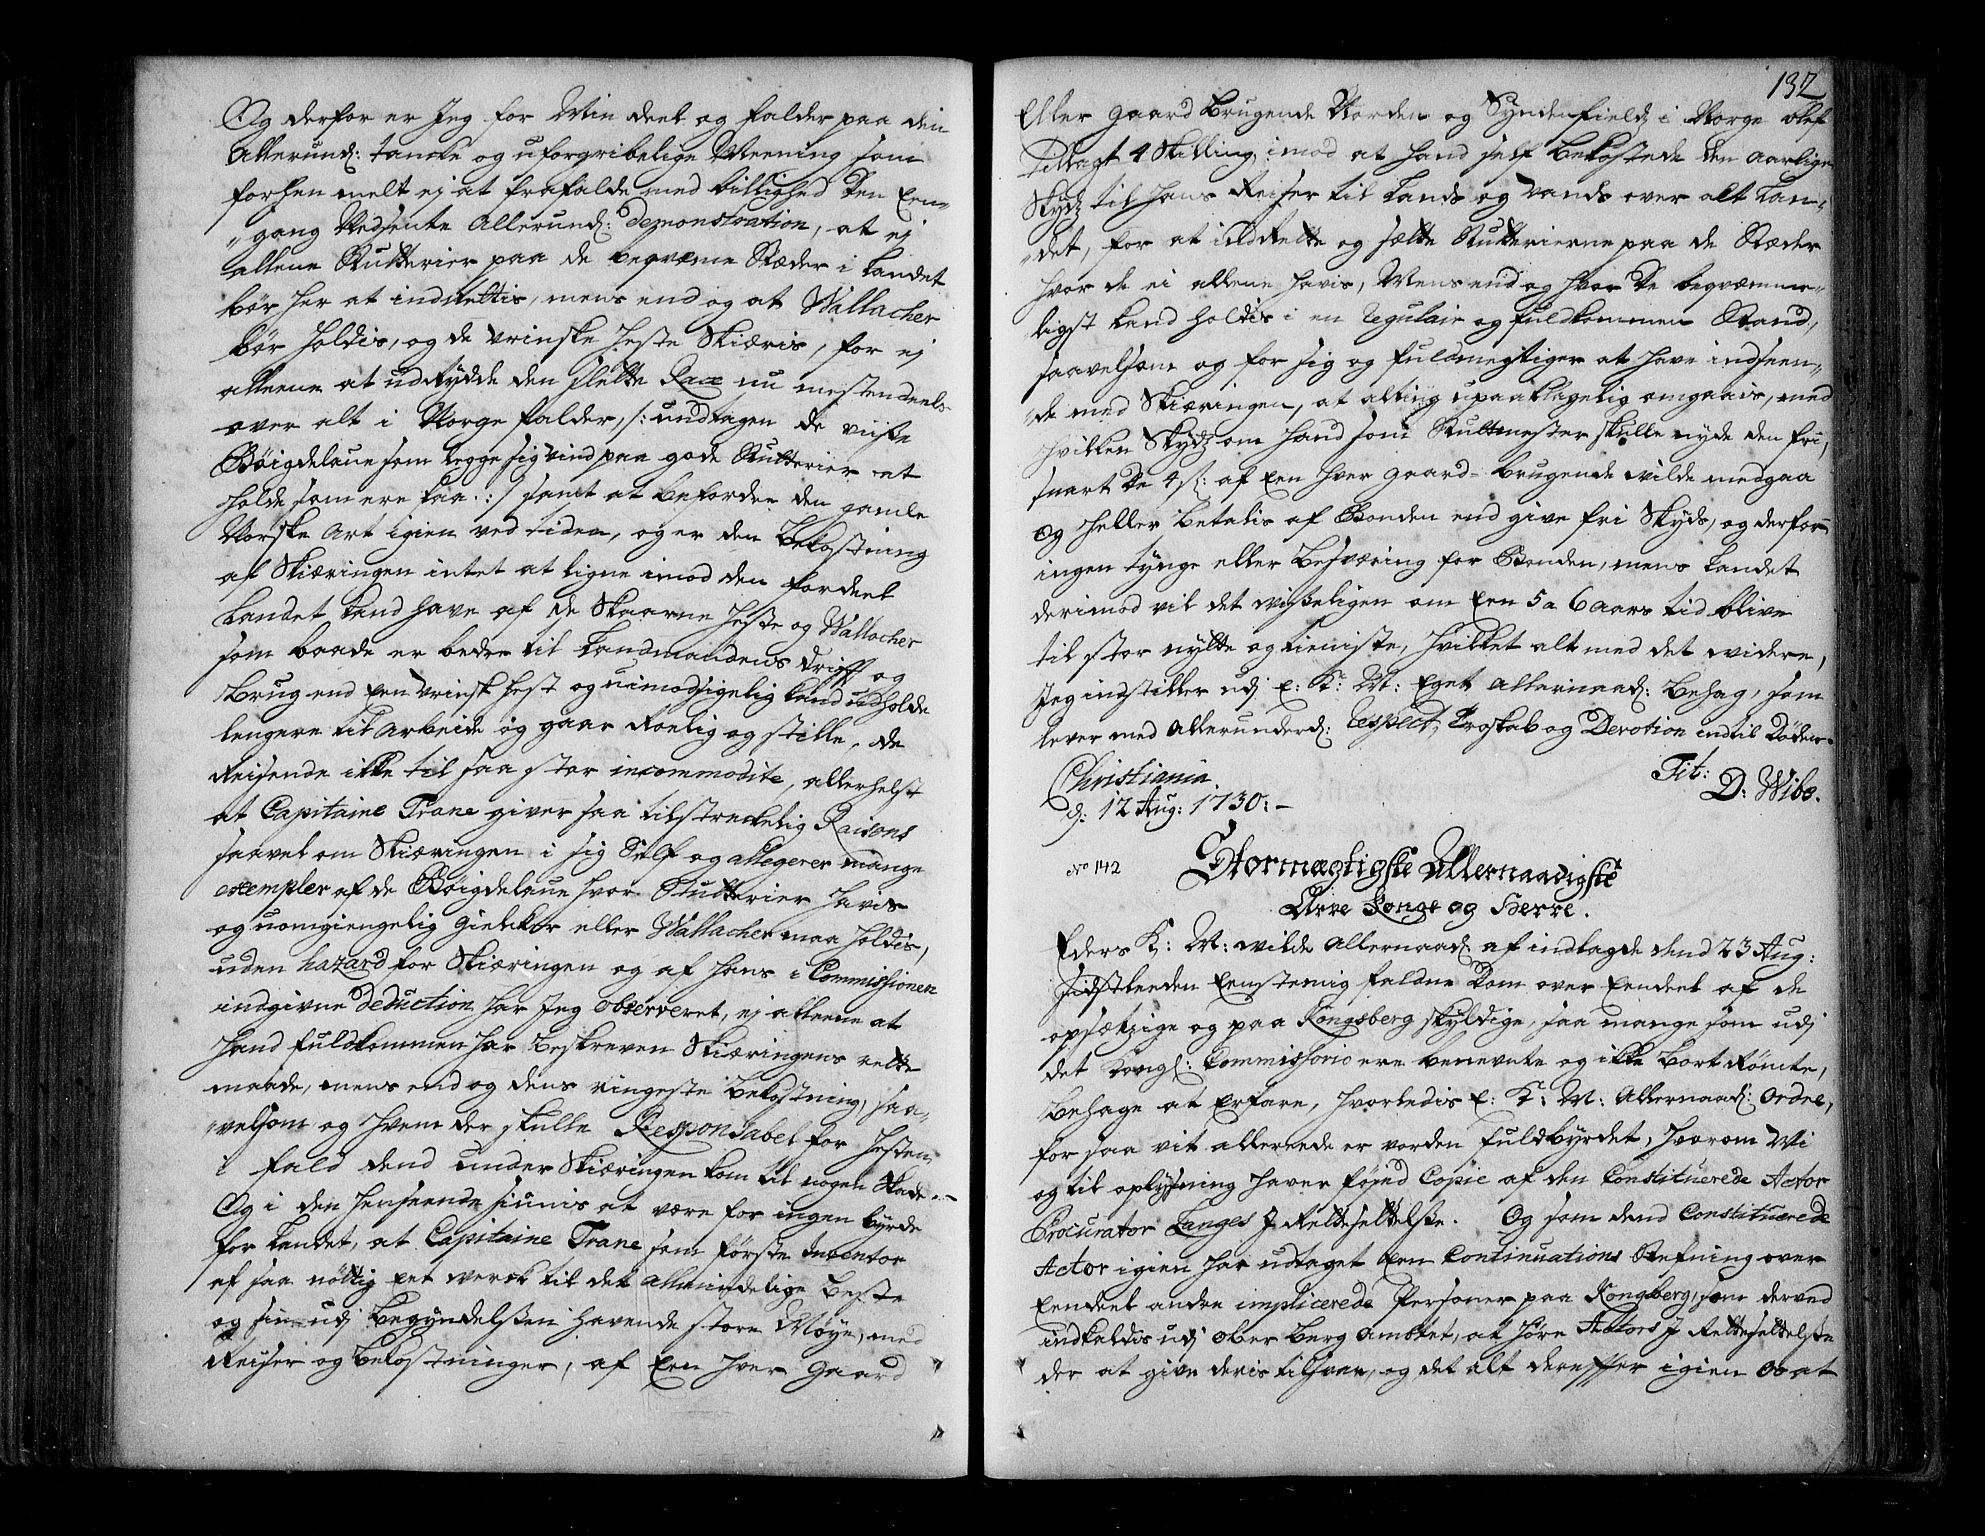 Og derfor er Jeg for Min deel og falder paa den
Allerund: tancke og uforgribelige Meening som
forhen melt ej at frafalde med tillighed den Een-
"gang Nedsente Allerund: Demonstration, at ej
allene Stutterier paa de beqvæme Stæder i Landet
bør her at indrettis, mens end og at Wallacher
bør holdis, og de vrinske Heste Skiæris, for ej
alleene at udrydde den slette Race nu mestendeels
over alt i Norge falder, /: undtagen de visse
Bøigdelaue som legge sig vind paa gode Stutterier at
holde som ere faa :/ samt at befordre den gamle
Norske Art igien ved tiden, og er den Bekostning
af Skiæringen intet at ligne imod den fordeel
Landet kand have af de Skaarne Heste og Wallacher
som baade er bedre til Landmandens Drifft og
Brug end een vrinsk Hest og uimodsigelig kand udholde
lengere til Arbeide og gaar Roelig og stille, de
Reisende ikke til saa stor incommodite, allerhelst
at Capitaine Trane giver saa tilstreckelig Raisons
saavel om Skiæringen i sig Self og allegerer mange
exempler af de Bøigdelaue hvor Stutterier havis
og uomgiengelig Gieldkør eller Wallacher maa holdis,
uden hazard for Skiæringen og af hans i Commissionen
indgivne Deduction har Jeg observeret, ej alleene at
hand fuldkommen har beskreven Skiæringens rette
maade, mens end og dens ringeste bekostning, saa-
"velsom og hvem der skulle Responsabel for Hesten,
i fald dend under Skiæringen kom til nogen Skade.
Og i den henseende siunis at være for ingen byrde
for Landet, at Capitaine Trane som første Inventor
af saa nøttig eet werck til det allmindelige Beste
og sin udj begyndelsen havende store Møye, med
Reiser og bekostninger, af Een hver Gaard
132
Eller Gaard Brugende Norden og Syndenfields i Norge blef
Tillagt 4 Skilling, imod at hand self bekostede den aarlige
Skydz til hans Reiser til Lands og Vands over alt Lan-
"det, for at indrette og sætte Stutterierne paa de Stæder
hvor de ei allene havis, Mens end og hvor de beqvemme-
ligst kand holdis i en Regulair og fuldkommen Stand,
saavelsom og for sig og fuldmegtiger at have indseen-
"de med Skiæringen, at alting upaaklagelig omgaais, med
hvilken Skydz om hand som Stuttmester skulle nyde den fri,
snart de 4 s: af Een hver gaard-brugende wilde medgaa
og heller betalis af Bonden end give fri Skyds, og derfor
ingen tynge eller Besværing for Bonden, mens Landet
derimod vil det wisseligen om Een 5 a 6 aars tid blive
til stor nytte og tieniste, hvilket alt med det widere,
Jeg indstiller udj E: K: M: Eget Allernaad: behag, som
lever med Allerunderd: Respect, Troskab og Devotion indtil Døden.
Christiania
d: 12 Aug: 1730:-
Tit:
D: Wibe.
No 142
Stormægtigste Allernaadigste
Arve Konge og Herre.
Eders K: M: wilde Allernaad: af indlagde dend 23 Aug:
sidstleeden Eenstemig faldne Dom over Eendeel af de
opsætzige og paa Kongsberg skyldige, saa mange som udj
det Kongl: Commissorio ere benevnte og ikke bort Rømte,
behage at erfare, hvorledis E: K: M: Allernaad: Ordre,
for saa vit allerede er vorden fuldbyrdet, hvorom Wi
og til oplysning haver føyed Copie af den Constituerede Actor
Procurator Langes J Rettesettelse. Og som dend Constituerede
Actor igien har udtaget Een Continuations Stefning over
Eendeel andre implicerede Persohner paa Kongsberg, som derved
indkaldis udj Ober Berg Amtet, at høre Actors J Rettesettelse
der at give deris tilsvar, og det alt dereffter igien os at